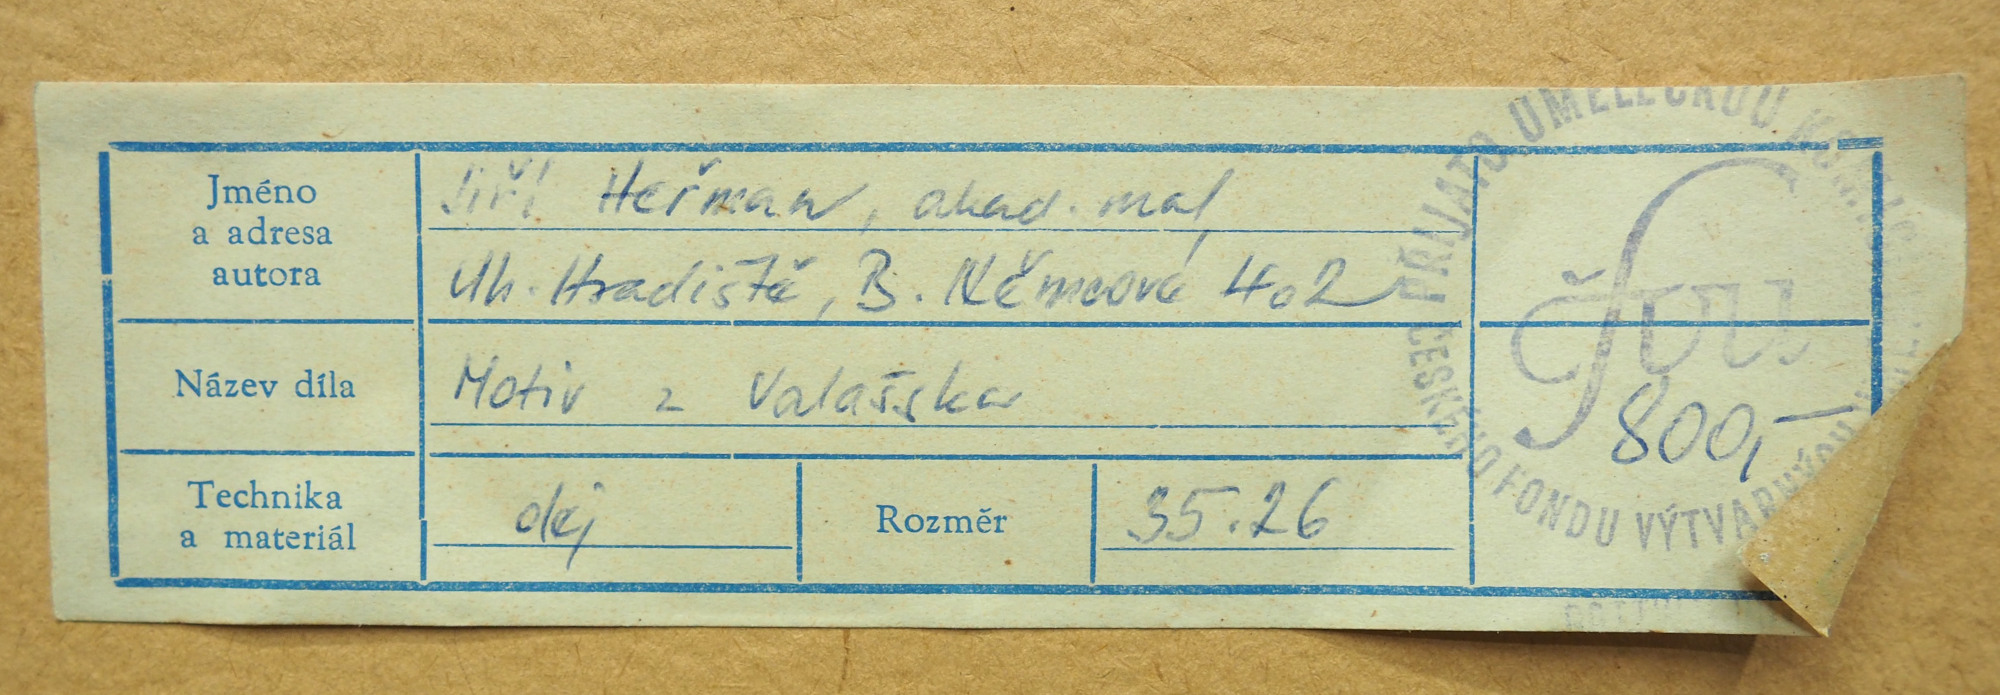 Jméno
a adresa
autora
Jiří Heřman, akad. mal,
Uh. Hradiště, B. Němcové 402
Název díla
Motiv z Valašska
Technika
a materiál
olej
Rozměr
35.26
PŘIJATO UMĚLECKOU
ČESKÉHO FONDU
čfvu
800,-